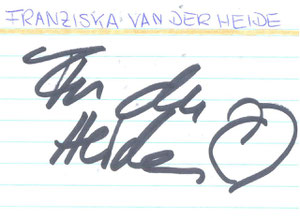 FRANZISKA VAN DER HEIDE
Fr. v. der
Heide